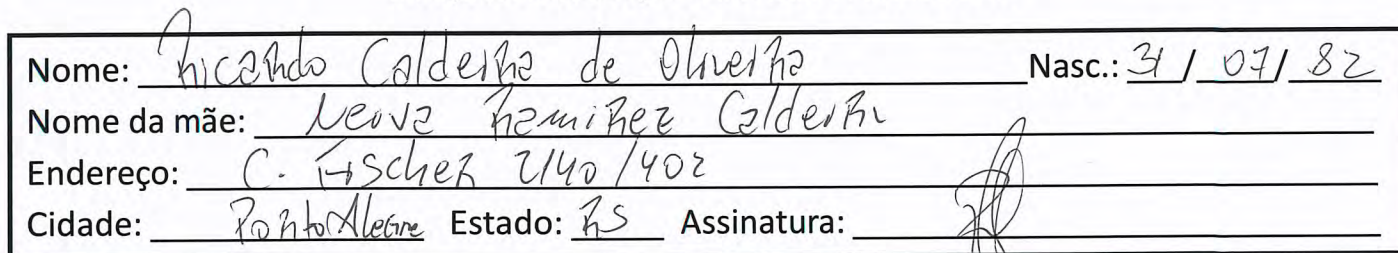 Nome: Ricardo Caldeira de Oliveira Nasc.: 31/07/82
Nome da mãe: Neiva Ramirez Caldeira
Endereço: C. Fischer 2140/402
Cidade: Porto Alegre Estado: RS Assinatura: